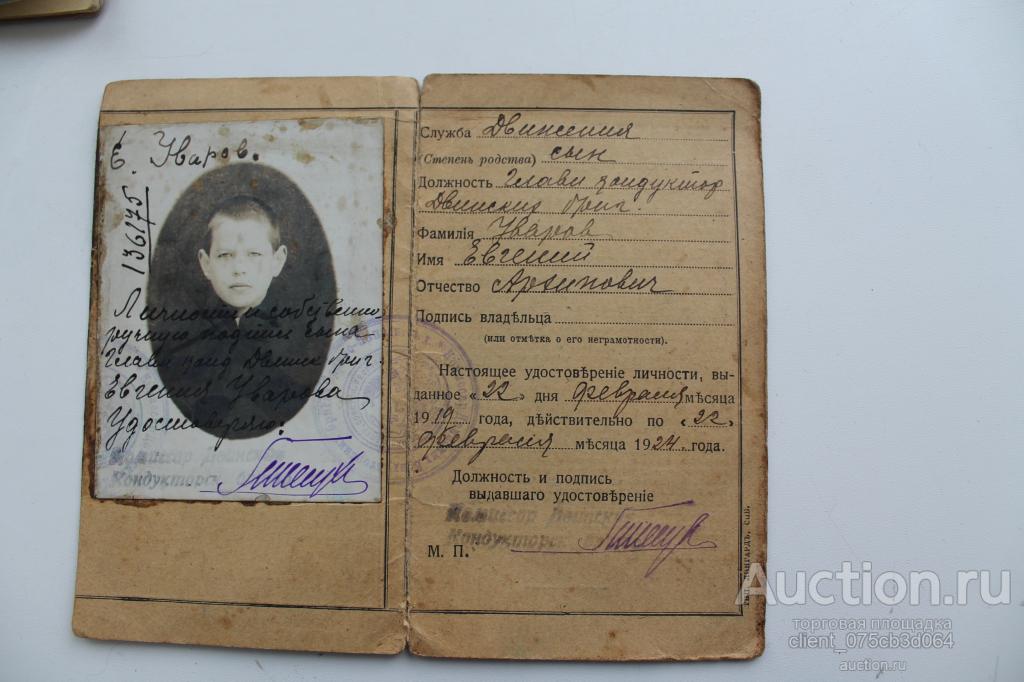 Е. Уваров.
136175
Личность и собственно-
ручную подпись сына
Главн конд Двинск бриг.
Евгения Уварова
Удостоверяю.
Комиссар Двинск
Кондукторс
Служба Движения
(Степень родства) сын
Должность Главн кондуктор
Двинских бриг.
Фамилія Уваров
Имя Евгений
Отчество Архипович
Подпись владѣльца
(или отмѣтка о его неграмотности).
Настоящее удостовѣреніе личности, вы-
данное «22» дня февраля мѣсяца
1919 года, дѣйствительно по «22»
февраля мѣсяца 1924 года.
Должность и подпись
выдавшаго удостовѣреніе
Комиссар Двинск
Кондукторск
М. П.
Auction.ru
торговая площадка
client_075cb3d064
auction.ru